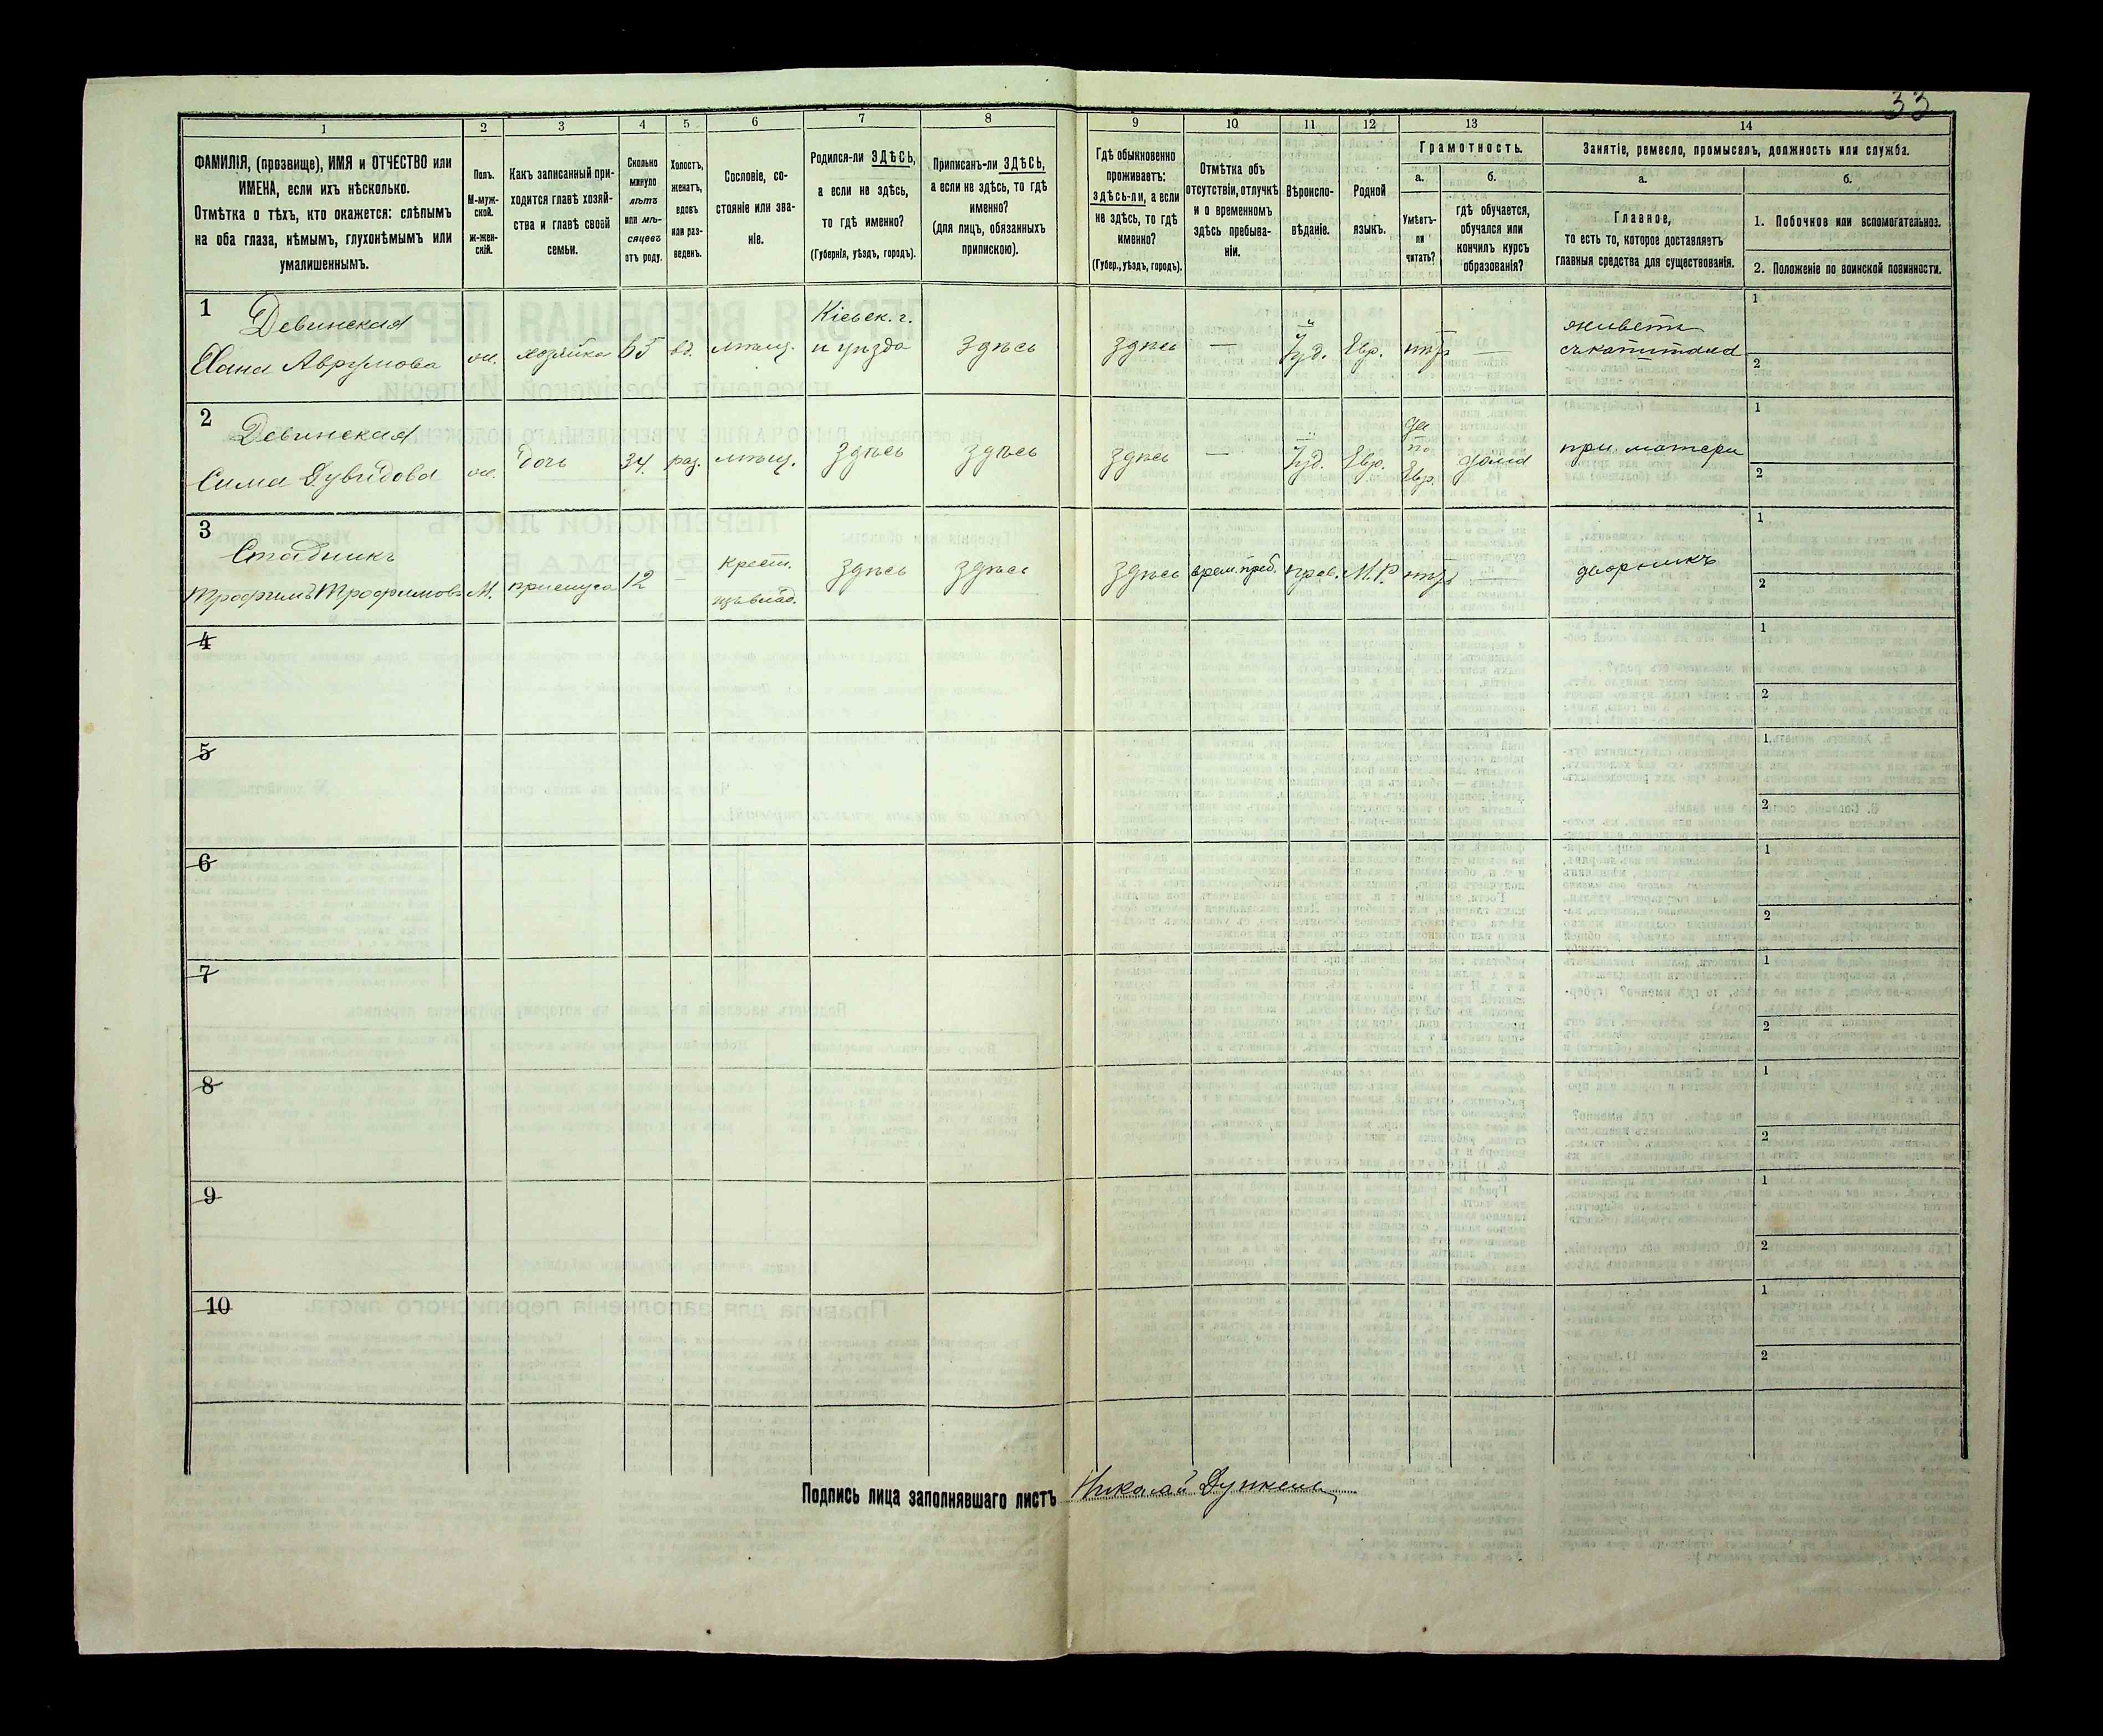 33
1 2 3 4 5 6 7 8 9 10 11 12 13 14
ФАМИЛІЯ, (прозвище), ИМЯ и ОТЧЕСТВО или
ИМЕНА, если ихъ нѣсколько.
Отмѣтка о тѣхъ, кто окажется: слѣпымъ
на оба глаза, нѣмымъ, глухонѣмымъ или
умалишеннымъ.
Полъ.
М-муж-
ской.
ж-жен-
скій.
Какъ записанный при-
ходится главѣ хозяй-
ства и главѣ своей
семьи.
Сколько
минуло
лѣтъ
или мѣ-
сяцевъ
отъ роду.
Холостъ,
женатъ,
вдовъ
или раз-
веденъ.
Сословіе, со-
стояніе или зва-
ніе.
Родился-ли ЗДѢСЬ,
а если не здѣсь,
то гдѣ именно?
(Губернія, уѣздъ, городъ).
Приписанъ-ли ЗДѢСЬ,
а если не здѣсь, то гдѣ
именно?
(для лицъ, обязанныхъ
припискою).
Гдѣ обыкновенно
проживаетъ:
ЗДѢСЬ-ЛИ, а если
не здѣсь, то гдѣ
именно?
(Губер., уѣздъ, городъ).
Отмѣтка объ
отсутствіи, отлучкѣ
и о временномъ
здѣсь пребыва-
ніи.
Вѣроиспо-
вѣданіе.
Родной
языкъ.
Грамотность.
а.
Умѣетъ-
ли
читать?
б.
гдѣ обучается,
обучался или
кончилъ курсъ
образованія?
Занятіе, ремесло, промыселъ, должность или служба.
а.
Главное,
то есть то, которое доставляетъ
главныя средства для существованія.
б.
1. Побочное или вспомогательное.
2. Положеніе по воинской повинности.
1
Девинская
Хана Аврумова
ж.
хозяйка
65
вд.
мѣщ.
Кіевск. г.
и уѣзда
здѣсь
здѣсь
—
Іуд.
Евр.
нѣтъ
—
живетъ
съ капитала
1
2
2
Девинская
Сима Дувидова
ж.
дочь
34
раз.
мѣщ.
здѣсь
здѣсь
здѣсь
—
Іуд.
Евр.
да
по
Евр.
дома
при матери
1
2
3
Стадникъ
Трофимъ Трофимовъ
М.
прислуга
12
–
крест.
изъ влад.
здѣсь
здѣсь
здѣсь
врем. преб.
прав.
М.Р.
нѣтъ
—
дворникъ
1
2
4
1
2
5
1.
2
6
1
2
7
1
2
8
1
2
9
1
2
10
1
2
Подпись лица заполнявшаго листъ Николай